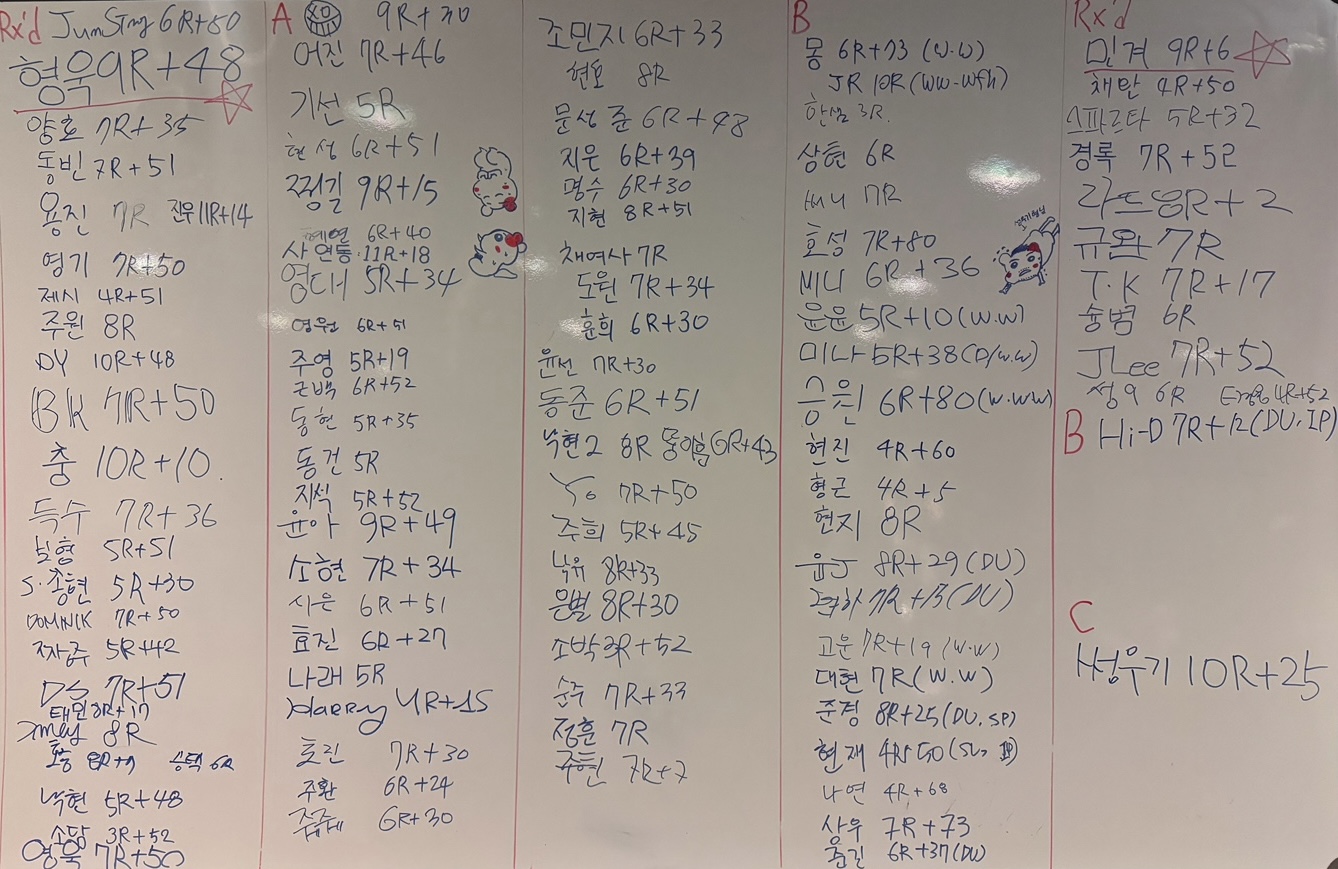 Rx'd JunSing 6R+50
형욱 9R+48
양호 7R+35
동빈 7R+51
용진 7R 진우 11R+14
영기 7R+50
제시 4R+51
주원 8R
DY 10R+48
BK 7R+50
충 10R+10.
득수 7R+36
보형 5R+51
S.송현 5R+30
DOMINIK 7R+50
5R+42
DS 7R+51
태민 8R+17
8R
호중 8R+7 승택 6R
낙현 5R+48
소담 3R+52
영욱 7R+50
A 9R+30
어진 7R+46
기선 5R
현성 6R+51
쩡길 9R+15
6R+40
사연동 11R+18
영대 5R+34
영원 6R+51
주영 5R+19
근백 6R+52
동현 5R+35
동건 5R
지석 5R+52
윤아 9R+49
소현 7R+34
시은 6R+51
효진 6R+27
나래 5R
Harry 4R+15
효진 7R+30
주환 6R+24
6R+30
조민지 6R+33
현호 8R
문성준 6R+48
지은 6R+39
명수 6R+30
지현 8R+51
채여사 7R
도원 7R+34
훈희 6R+30
윤선 7R+30
동준 6R+51
낙현2 8R 6R+43
Yo 7R+50
주희 5R+45
낙유 8R+33
은별 8R+30
소박 +52
순주 7R+33
정훈 7R
주현 7R+7
B
몽 6R+73 (W.W)
JR 10R (WW-Wfh)
한샘 3R.
상현 6R
써니 7R
효성 7R+80
쎄니 6R+36
윤윤 5R+10 (W.W)
미나 5R+38 (D/W.W)
승은 6R+80 (W.WW)
현진 4R+60
형근 4R+5
현지 8R
윤J 8R+29 (DU)
7R+13 (DU)
고운 7R+19 (W.W)
대현 7R (W.W)
준경 8R+25 (DU.SP)
현재 4R+50
나연 4R+68
상우 7R+73
6R+37 (DU)
Rx'd
민겨 9R+6
채만 4R+50
스파르타 5R+32
경록 7R+52
라드 8R+2
규완 7R
T.K 7R+17
숭범 6R
JLee 7R+52
썽9 6R 4R+52
B Hi-D 7R+12 (DU.IP)
C
성우기 10R+25